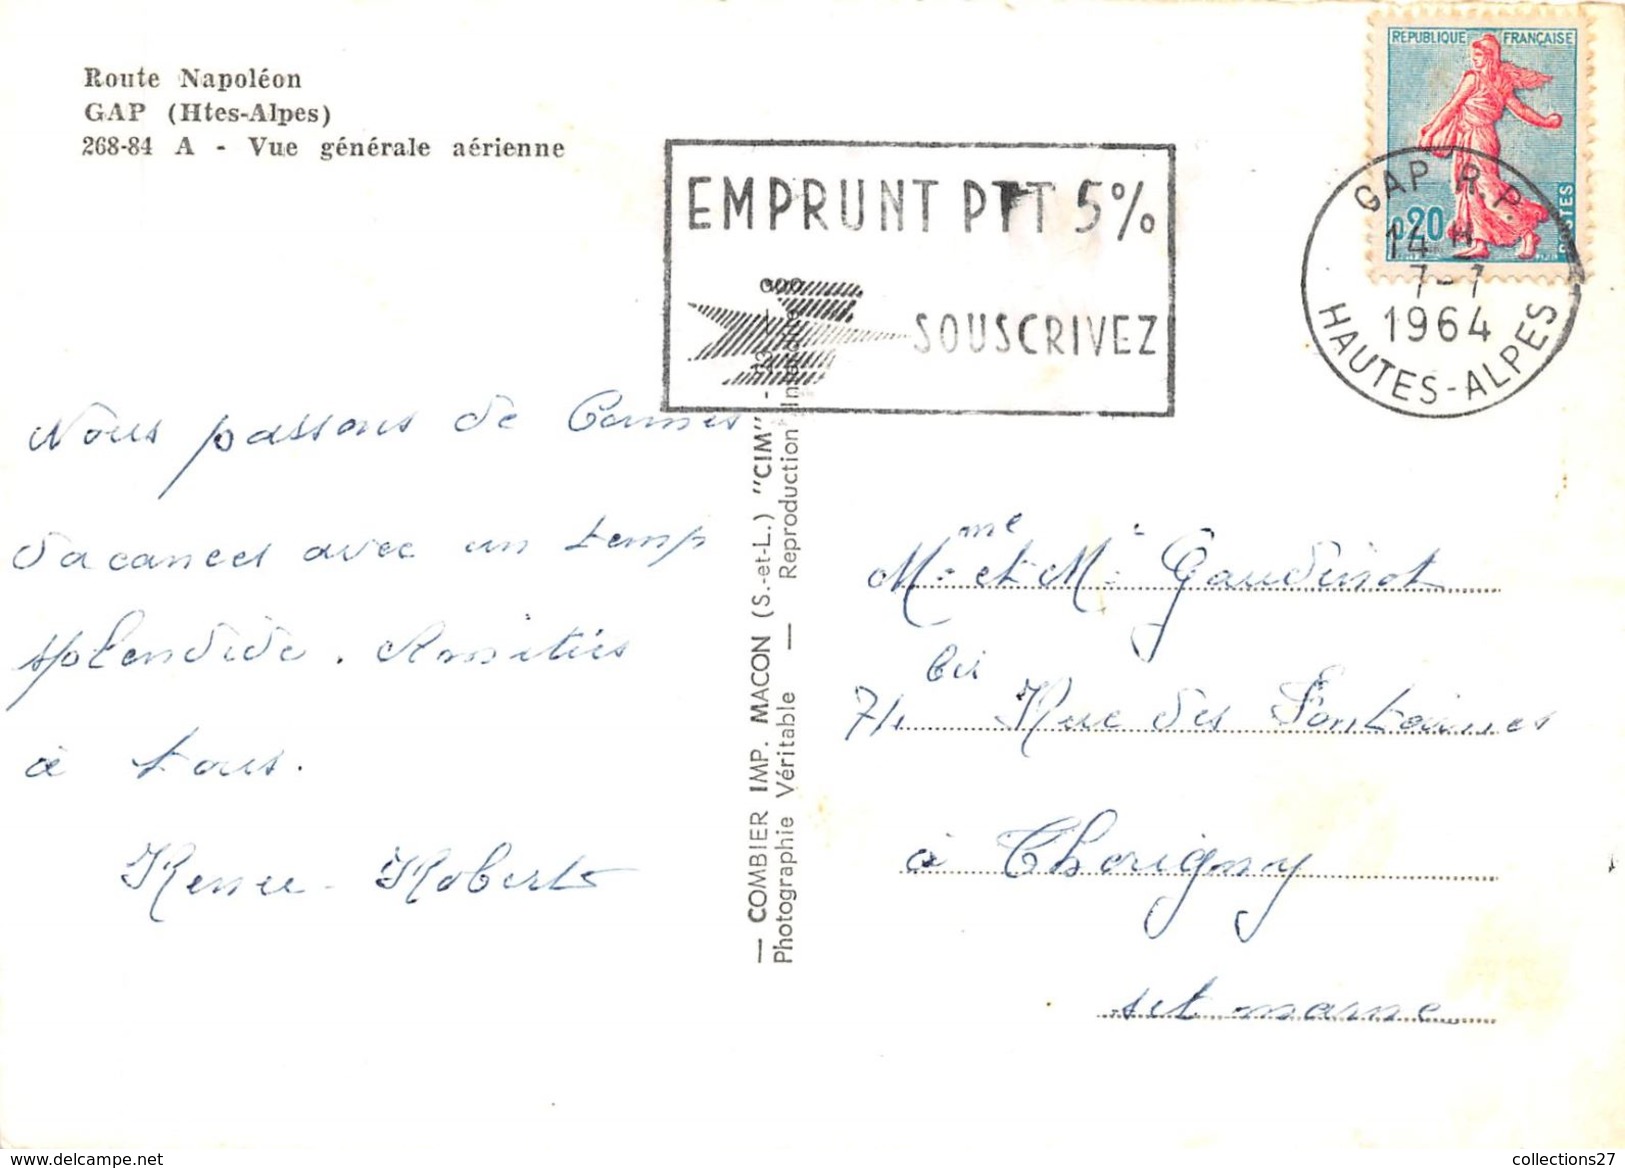 Route Napoléon
GAP (Htes-Alpes)
268-84 A - Vue générale aérienne
EMPRUNT PTT 5%
SOUSCRIVEZ
REPUBLIQUE FRANÇAISE
0,20
POSTES
GAP R.P.
14 H
7-7
1964
HAUTES-ALPES
Nous passons de bonnes
vacances avec un temps
splendide. Amitiés
à tous.
Renée - Robert
— COMBIER IMP. MACON (S.-et-L.) "CIM" -
Photographie Véritable — Reproduction Interdite
Mme et Mr Gaudinot
74 bis Rue des Fontaines
à Thorigny
set marne
collections27